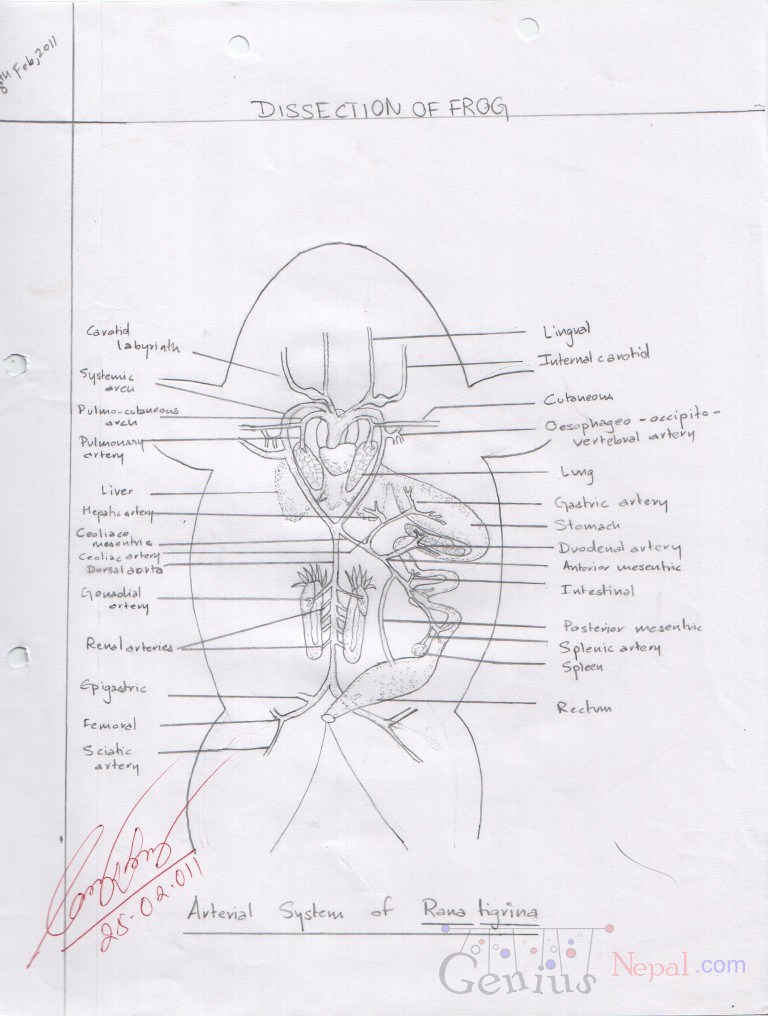 Feb, 2011
DISSECTION OF FROG
Carotid
labyrinth
Systemic
arch
Pulmo-cutaneous
arch
Pulmonary
artery
Liver
Hepatic artery
Ceoliaco
mesentric
Ceoliac artery
Dorsal aorta
Gonadial
artery
Renal arteries
Epigastric
Femoral
Sciatic
artery
Lingual
Internal carotid
Cutaneous
Oesophageo-occipito-
vertebral artery
Lung
Gastric artery
Stomach
Duodenal artery
Anterior mesentric
Intestinal
Posterior mesentric
Splenic artery
Spleen
Rectum
25.02.011
Arterial System of Rana tigrina
Genius Nepal.com